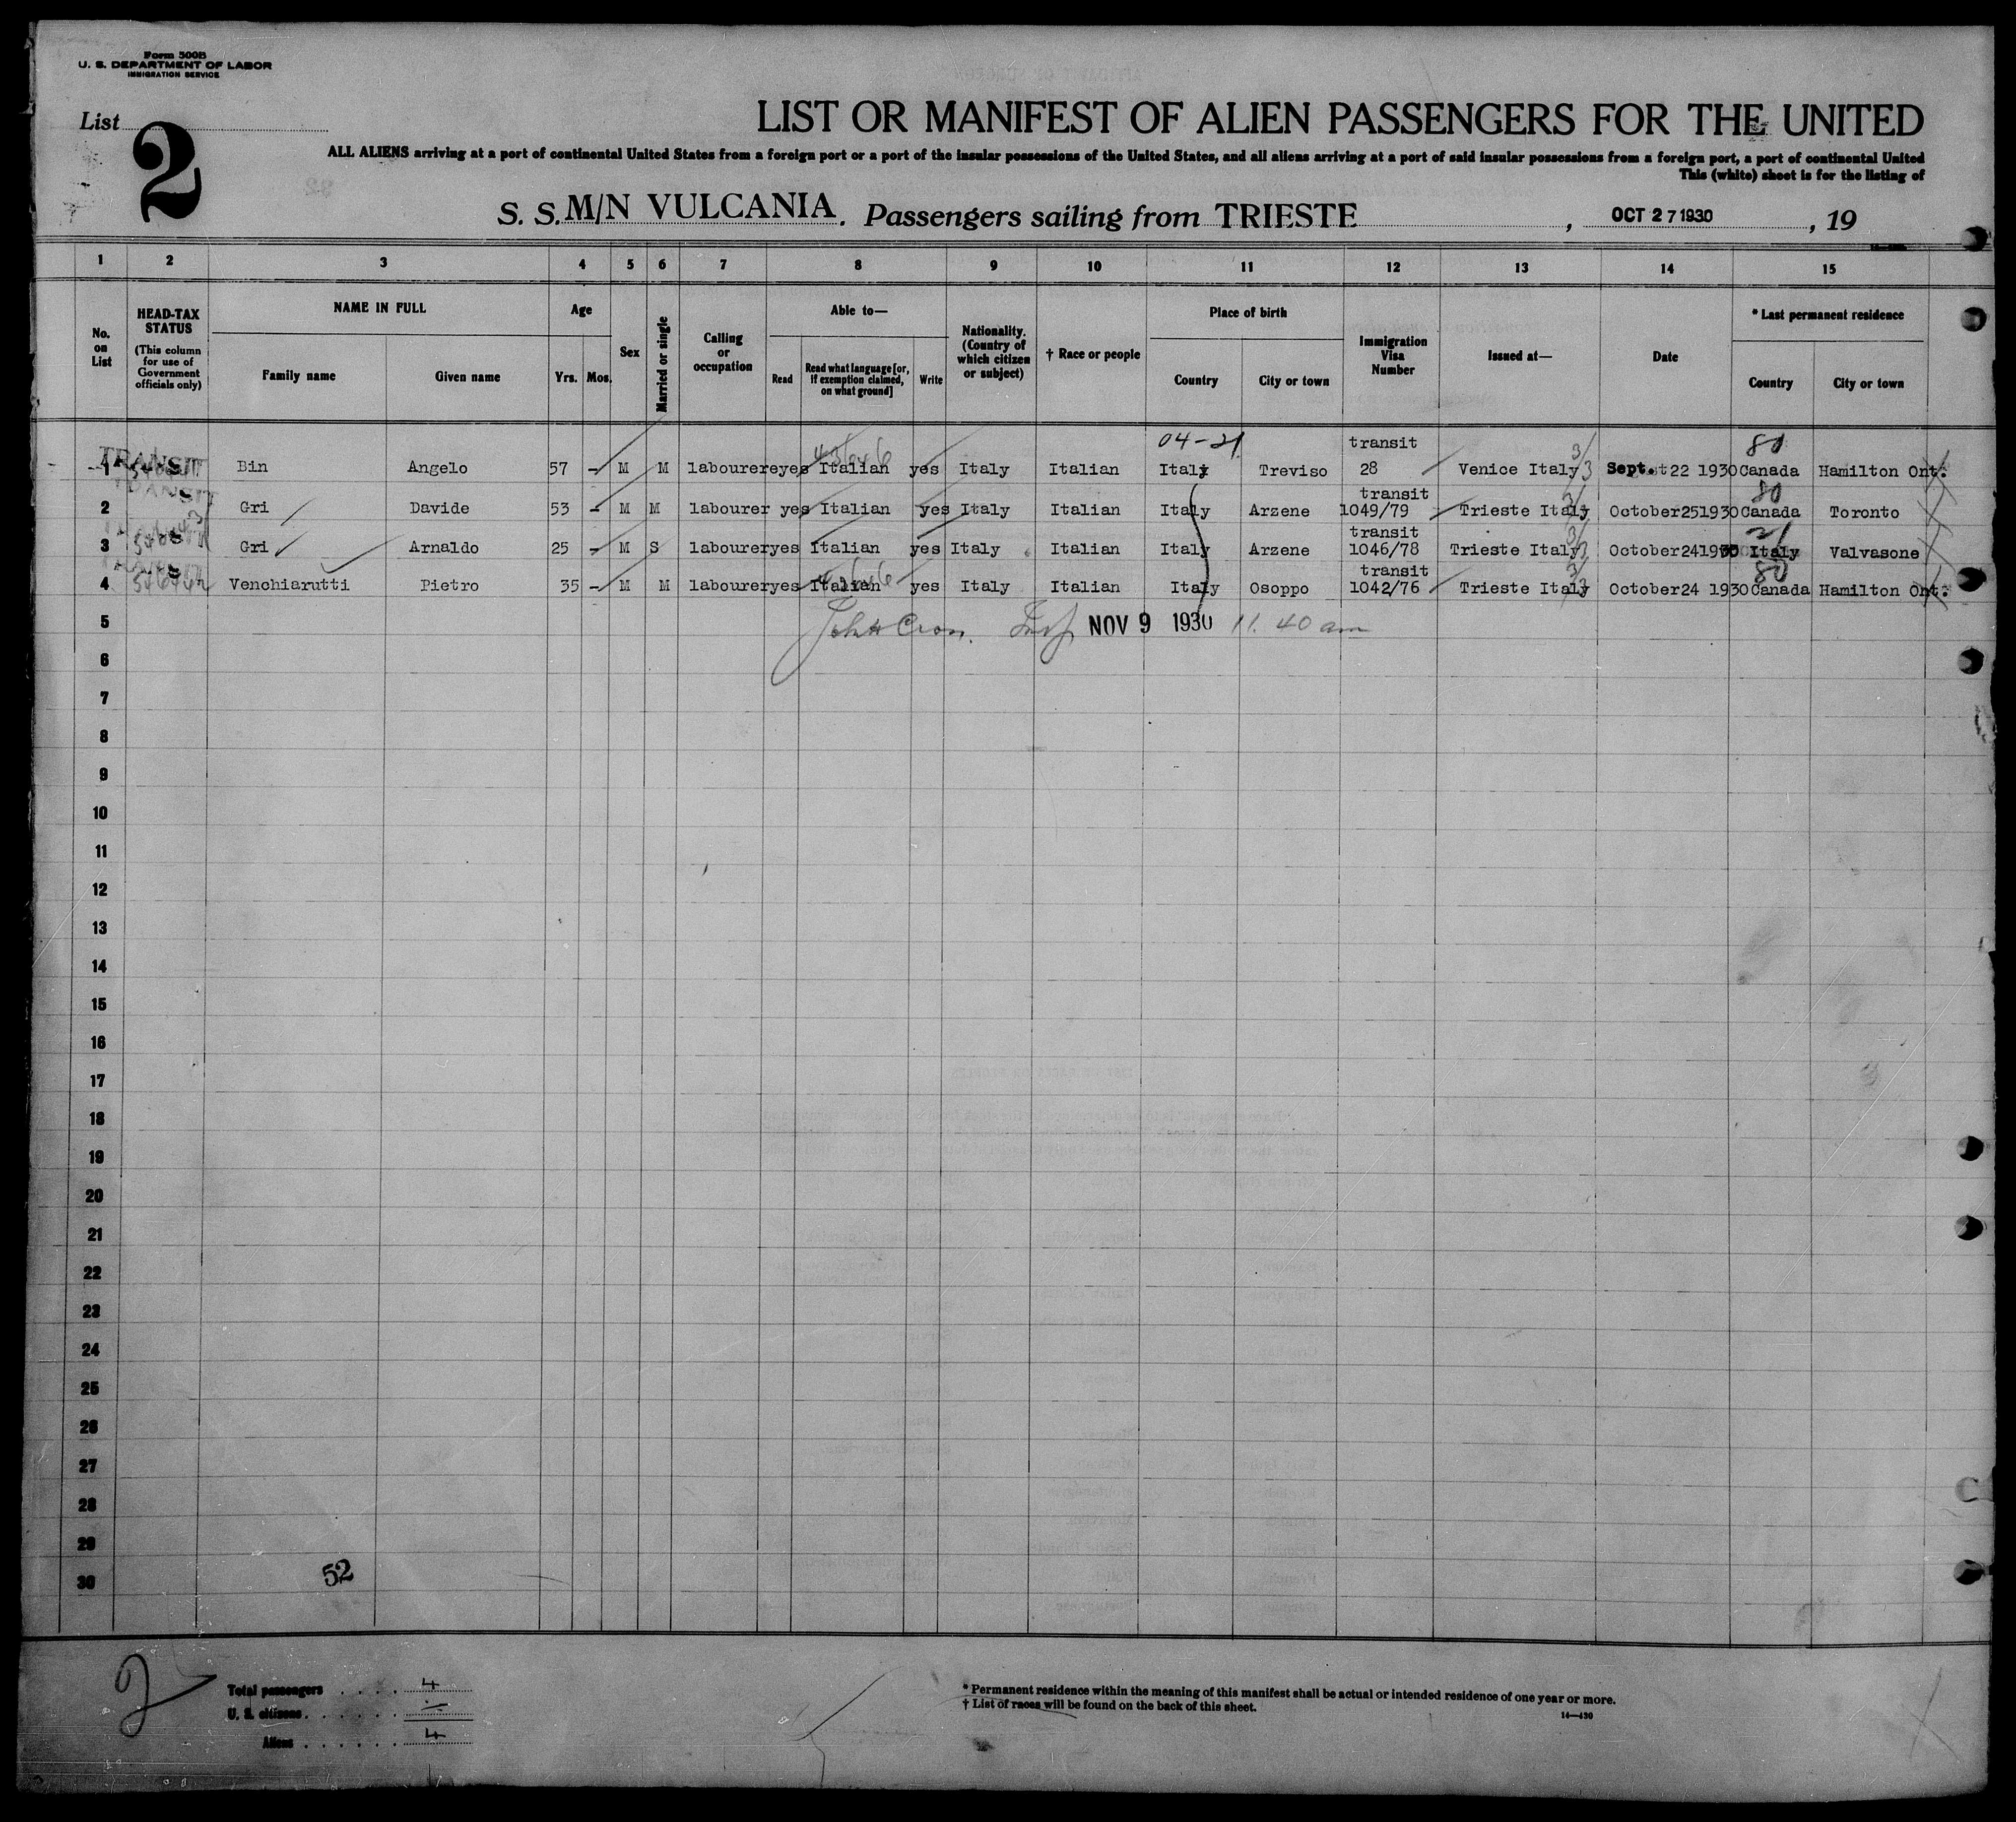 Form 500B
U. S. DEPARTMENT OF LABOR
IMMIGRATION SERVICE
List 2
LIST OR MANIFEST OF ALIEN PASSENGERS FOR THE UNITED
ALL ALIENS arriving at a port of continental United States from a foreign port or a port of the insular possessions of the United States, and all aliens arriving at a port of said insular possessions from a foreign port, a port of continental United
This (white) sheet is for the listing of
S. S. M/N VULCANIA. Passengers sailing from TRIESTE, OCT 27 1930, 19
1 2 3 4 5 6 7 8 9 10 11 12 13 14 15
No. on List
HEAD-TAX STATUS (This column for use of Government officials only)
NAME IN FULL
Family name
Given name
Age
Yrs. Mos.
Sex
Married or single
Calling or occupation
Able to—
Read
Read what language [or, if exemption claimed, on what ground]
Write
Nationality. (Country of which citizen or subject)
† Race or people
Place of birth
Country
City or town
Immigration Visa Number
Issued at—
Date
* Last permanent residence
Country
City or town
04-21 transit 80
1 TRANSIT Bin Angelo 57 - M M labourer yes Italian yes Italy Italian Italy Treviso 28 Venice Italy Sept. 22 1930 Canada Hamilton Ont.
transit 80
2 Gri Davide 53 - M M labourer yes Italian yes Italy Italian Italy Arzene 1049/79 Trieste Italy October 25 1930 Canada Toronto
transit 21
3 Gri Arnaldo 25 - M S labourer yes Italian yes Italy Italian Italy Arzene 1046/78 Trieste Italy October 24 1930 Italy Valvasone
transit 80
4 Venchiarutti Pietro 35 - M M labourer yes Italian yes Italy Italian Italy Osoppo 1042/76 Trieste Italy October 24 1930 Canada Hamilton Ont.
5 NOV 9 1930 11.40 am
6
7
8
9
10
11
12
13
14
15
16
17
18
19
20
21
22
23
24
25
26
27
28
29
30
52
2
Total passengers . . . . 4
U. S. citizens . . . . . . -
Aliens . . . . . . 4
* Permanent residence within the meaning of this manifest shall be actual or intended residence of one year or more.
† List of races will be found on the back of this sheet.
14—430